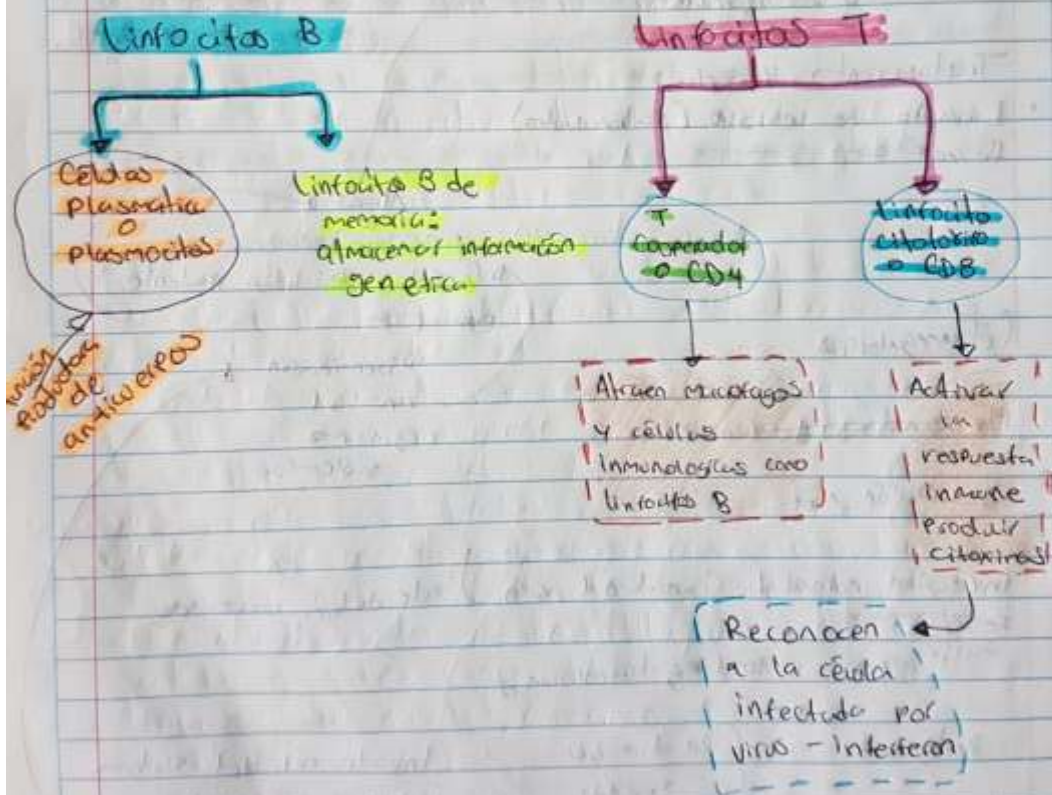 Linfocitos B
Células
plasmatica
o
plasmocitos
función
productora
de
anticuerpos
Linfocitos B de
memoria:
almacenar información
genetica
Linfocitos T
T
Cooperador
o CD4
Linfocito
citotoxico
o CD8
Atraen macrofagos
y células
inmunologicas como
linfocitos B
Activar
la
respuesta
inmune
producir
citoxinas
Reconocen
a la célula
infectada por
virus - Interferon